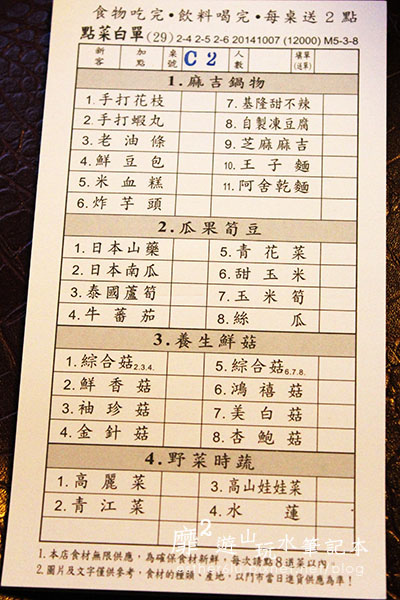 食物吃完•飲料喝完•每桌送2點
點菜白單(29) 2-4 2-5 2-6 20141007 (12000) M5-3-8
新客 加點 桌號 C2 人數 填單(送單)
1.麻吉鍋物
1.手打花枝 7.基隆甜不辣
2.手打蝦丸 8.自製凍豆腐
3.老油條 9.芝麻麻吉
4.鮮豆包 10.王子麵
5.米血糕 11.阿舍乾麵
6.炸芋頭
2.瓜果筍豆
1.日本山藥 5.青花菜
2.日本南瓜 6.甜玉米
3.泰國蘆筍 7.玉米筍
4.牛蕃茄 8.絲瓜
3.養生鮮菇
1.綜合菇2.3.4. 5.綜合菇6.7.8.
2.鮮香菇 6.鴻禧菇
3.袖珍菇 7.美白菇
4.金針菇 8.杏鮑菇
4.野菜時蔬
1.高麗菜 3.高山娃娃菜
2.青江菜 4.水蓮
摩²遊山玩水筆記本
1.本店食材無限供應，為確保食材新鮮，每次請點8選菜以內
2.圖片及文字僅供參考，食材的種類、產地，以門市當日進貨供應為準！